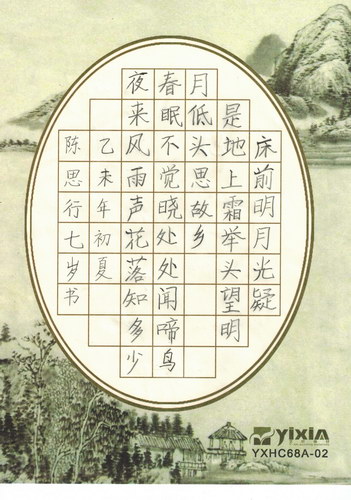 床前明月光疑
是地上霜举头望明
月低头思故乡
春眠不觉晓处处闻啼鸟
夜来风雨声花落知多少
乙未年初夏
陈思行七岁书
yixin
YXHC68A-02